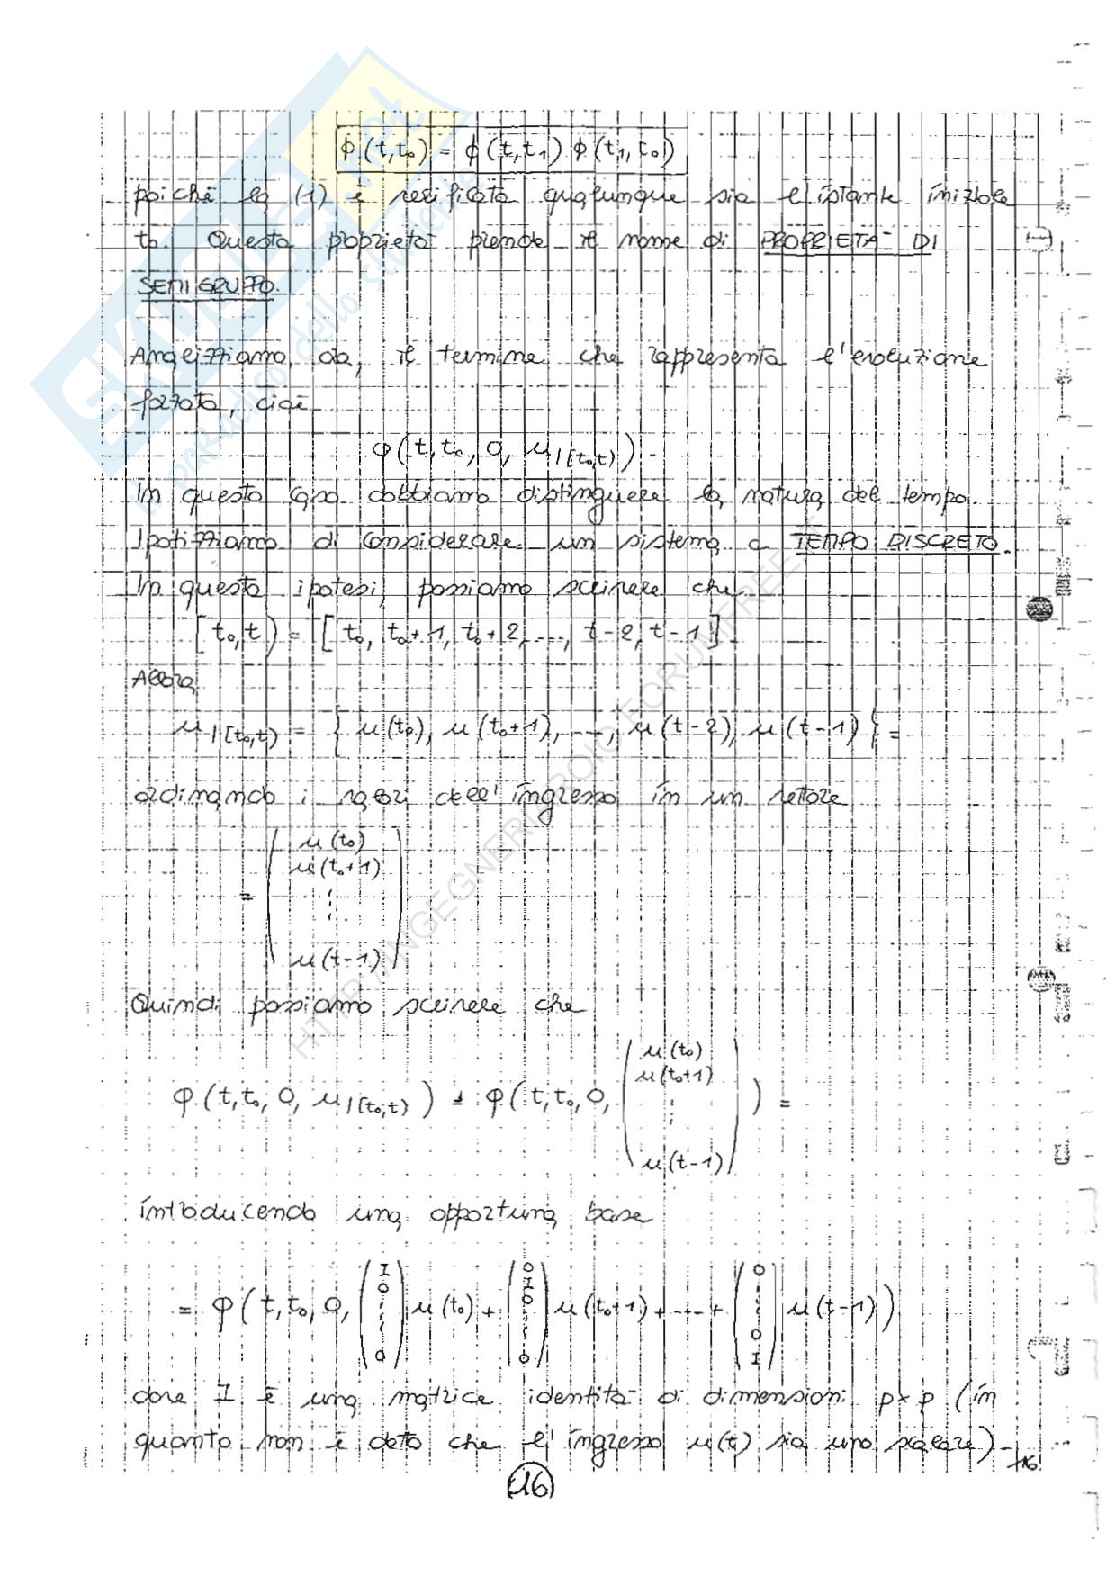 ϕ(t,t₀) = ϕ(t,t₁) ϕ(t₁,t₀)
poiché la (1) è verificata qualunque sia l'istante iniziale
t₀. Questa proprietà prende il nome di PROPRIETÀ DI
SEMIGRUPPO.
Analizziamo, ora, il termine che rappresenta l'evoluzione
forzata, cioè
φ(t,t₀, 0, u|[t₀,t))
In questo caso dobbiamo distinguere la natura del tempo.
Ipotizziamo di considerare un sistema a TEMPO DISCRETO.
In questa ipotesi possiamo scrivere che
[t₀,t) = [t₀, t₀+1, t₀+2, ..., t-2, t-1]
Allora
u|[t₀,t) = { u(t₀), u(t₀+1), ..., u(t-2), u(t-1) } =
ordinando i valori dell'ingresso in un vettore
u(t₀)
u(t₀+1)
=
⋮
u(t-1)
Quindi possiamo scrivere che
u(t₀)
u(t₀+1)
φ(t,t₀, 0, u|[t₀,t)) = φ(t,t₀, 0, ⋮ ) =
u(t-1)
introducendo una opportuna base
= φ(t,t₀, 0, (I 0 ⋮ 0) u(t₀) + (0 I 0 ⋮ 0) u(t₀+1) + ... + (0 ⋮ 0 I) u(t-1))
dove I è una matrice identità di dimensioni p×p (in
quanto non è detto che l'ingresso u(t) sia uno scalare).
16